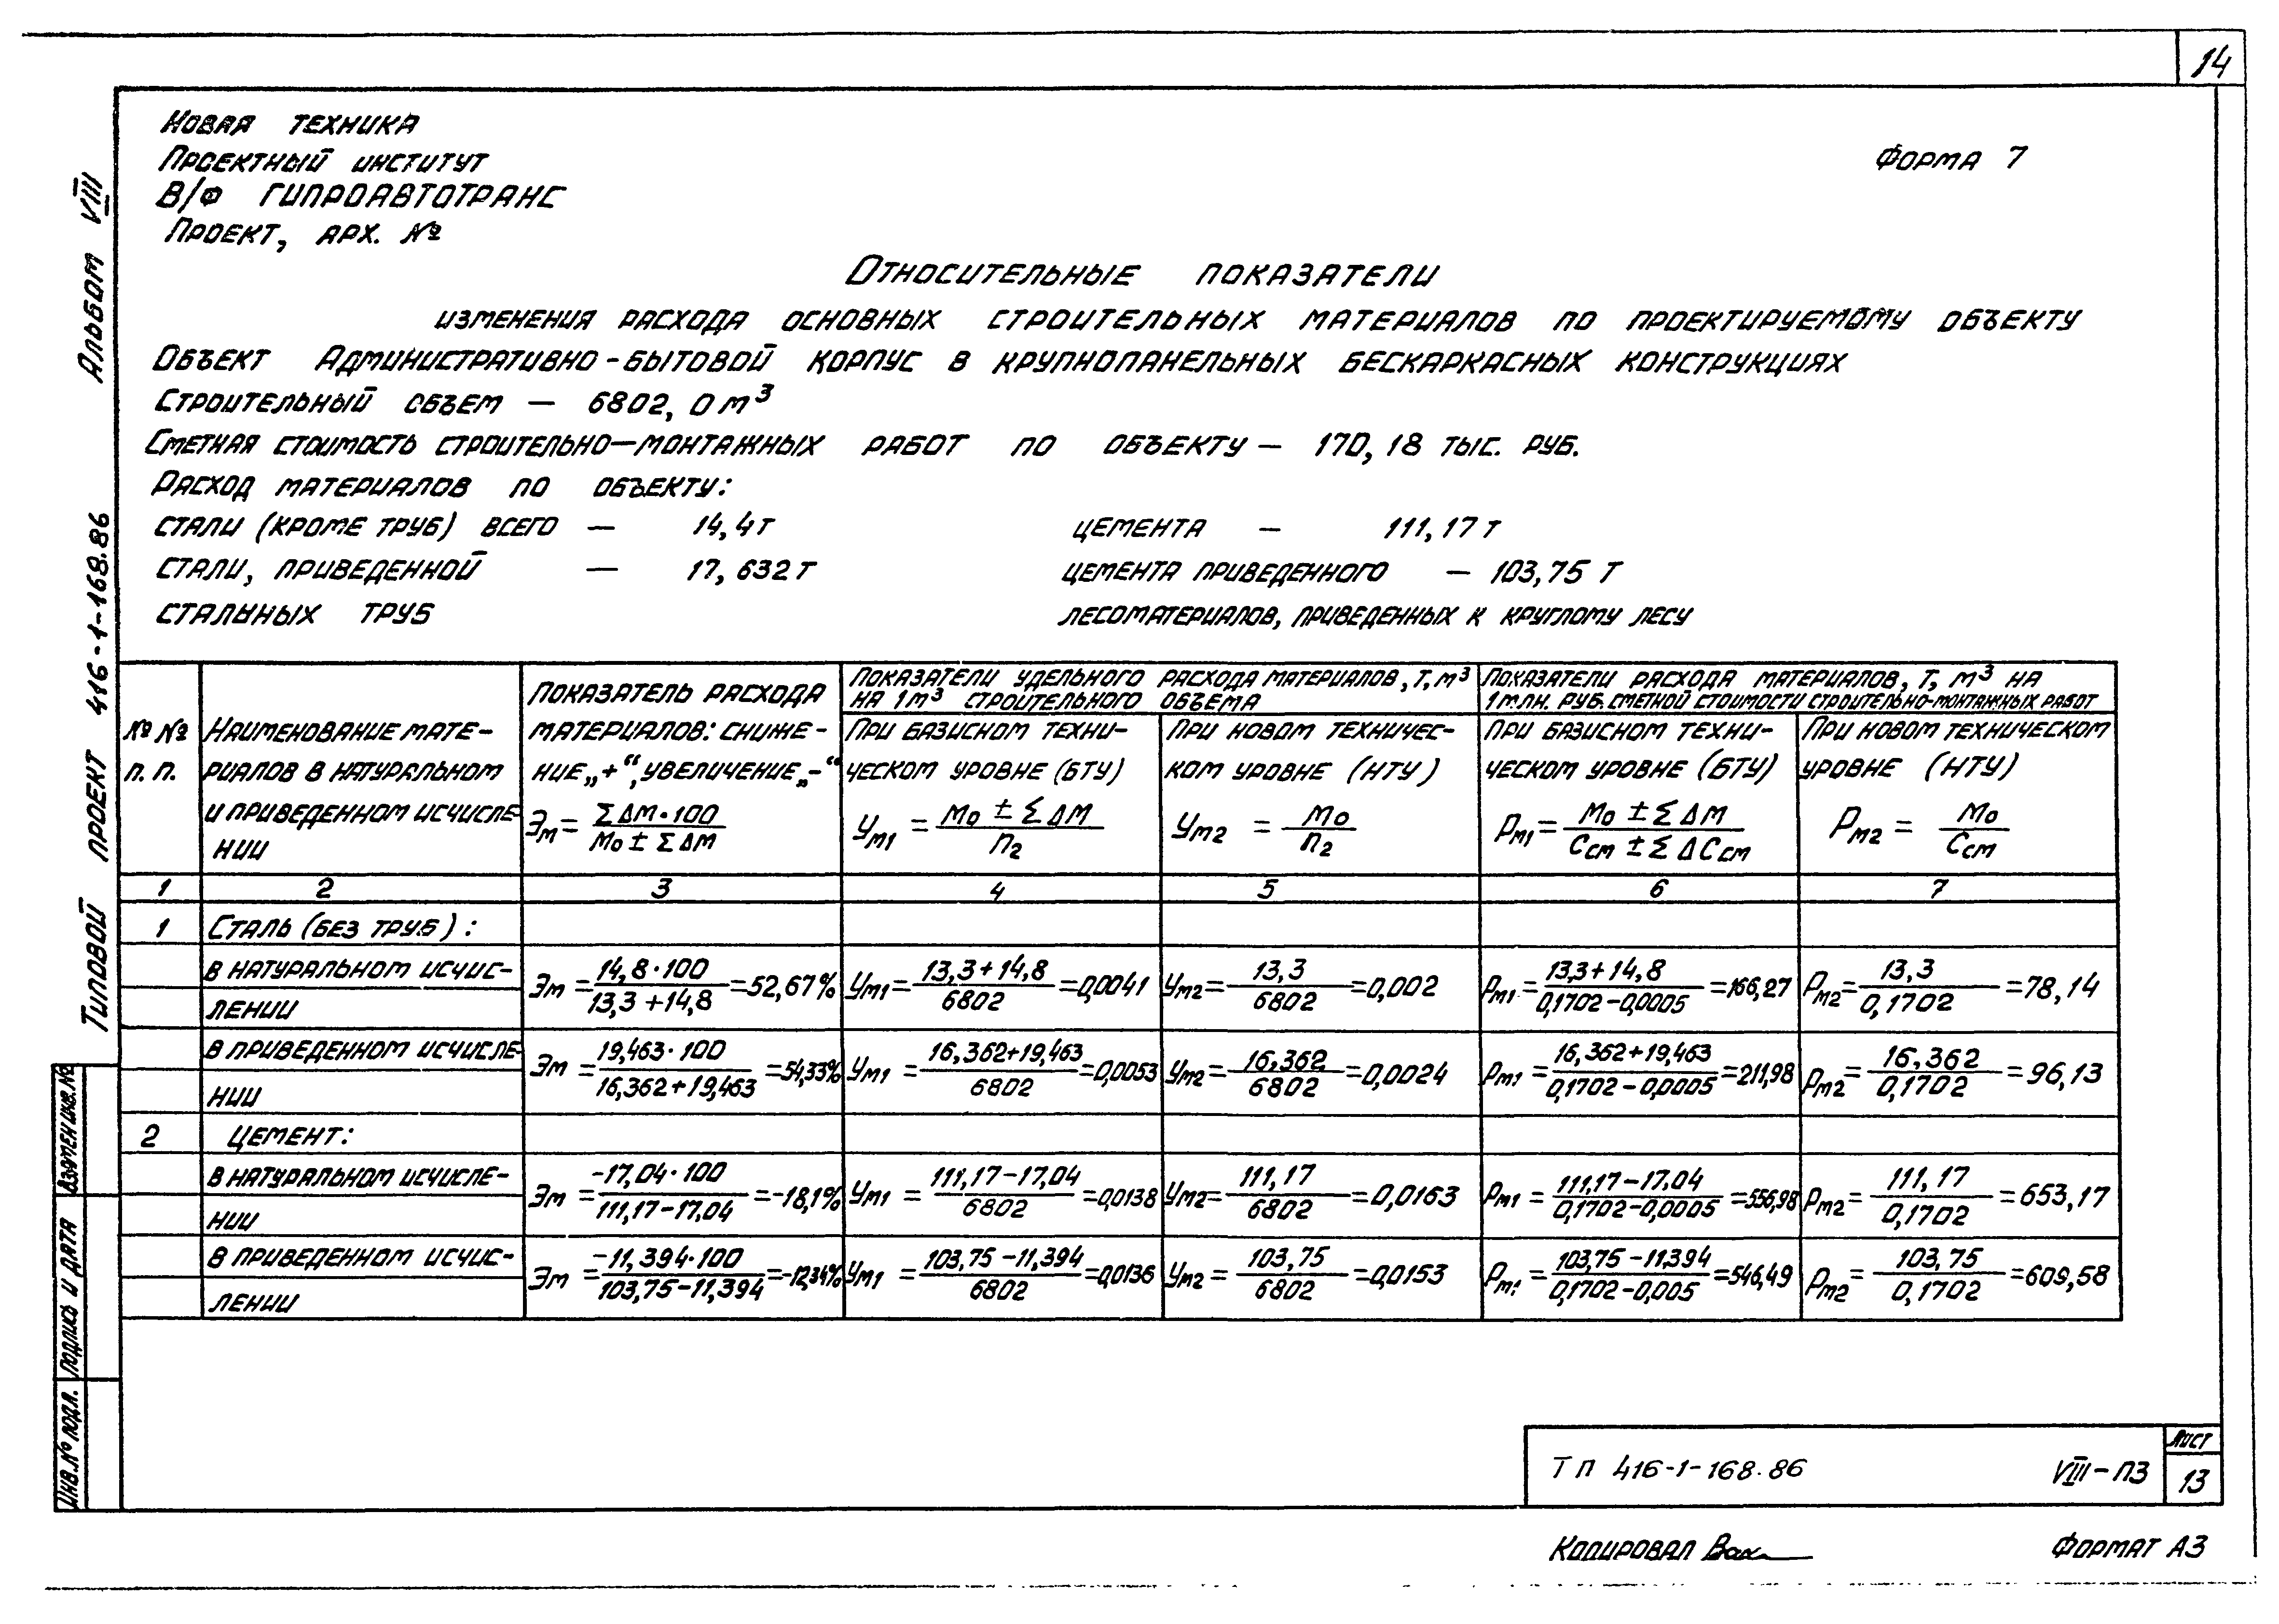 14
Новая техника
Проектный институт
В/О ГИПРОАВТОТРАНС
Проект, арх. №
Форма 7
Относительные показатели
изменения расхода основных строительных материалов по проектируемому объекту
Объект Административно-бытовой корпус в крупнопанельных бескаркасных конструкциях
Строительный объем — 6802,0 м³
Сметная стоимость строительно-монтажных работ по объекту — 170,18 тыс. руб.
Расход материалов по объекту:
стали (кроме труб) всего — 14,4 т
цемента — 111,17 т
стали, приведенной — 17,632 т
цемента приведенного — 103,75 т
стальных труб
лесоматериалов, приведенных к круглому лесу
№№ п.п.
Наименование мате-
риалов в натуральном
и приведенном исчисле-
нии
Показатель расхода
материалов: сниже-
ние „+“, увеличение „-“
Эм = ΣΔм·100 / Мо ± ΣΔм
Показатели удельного расхода материалов, т, м³
на 1м³ строительного объема
При базисном техни-
ческом уровне (БТУ)
Ум1 = Мо ± ΣΔм / П2
При новом техничес-
ком уровне (НТУ)
Ум2 = Мо / П2
Показатели расхода материалов, т, м³ на
1 млн. руб. сметной стоимости строительно-монтажных работ
При базисном техни-
ческом уровне (БТУ)
Рм1 = Мо ± ΣΔм / Ссм ± ΣΔСсм
При новом техническом
уровне (НТУ)
Рм2 = Мо / Ссм
1 2 3 4 5 6 7
1 Сталь (без труб):
в натуральном исчис-
лении
Эм = 14,8·100 / 13,3+14,8 = 52,67%
Ум1 = 13,3+14,8 / 6802 = 0,0041
Ум2 = 13,3 / 6802 = 0,002
Рм1 = 13,3+14,8 / 0,1702-0,0005 = 166,27
Рм2 = 13,3 / 0,1702 = 78,14
в приведенном исчисле-
нии
Эм = 19,463·100 / 16,362+19,463 = 54,33%
Ум1 = 16,362+19,463 / 6802 = 0,0053
Ум2 = 16,362 / 6802 = 0,0024
Рм1 = 16,362+19,463 / 0,1702-0,0005 = 211,98
Рм2 = 16,362 / 0,1702 = 96,13
2 Цемент:
в натуральном исчисле-
нии
Эм = -17,04·100 / 111,17-17,04 = -18,1%
Ум1 = 111,17-17,04 / 6802 = 0,0138
Ум2 = 111,17 / 6802 = 0,0163
Рм1 = 111,17-17.04 / 0,1702-0,0005 = 556,98
Рм2 = 111,17 / 0,1702 = 653,17
в приведенном исчис-
лении
Эм = -11,394·100 / 103,75-11,394 = -12,34%
Ум1 = 103,75-11,394 / 6802 = 0,0136
Ум2 = 103,75 / 6802 = 0,0153
Рм1 = 103,75-11,394 / 0,1702-0,005 = 546,49
Рм2 = 103,75 / 0,1702 = 609,58
Типовой проект 416-1-168.86 Альбом VIII
Взамен инв.№
Подпись и дата
Инв.№ подл.
ТП 416-1-168.86
VIII-ПЗ
Лист
13
Копировал
Формат А3